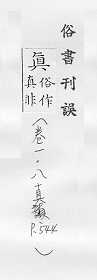 俗書刊誤
眞俗作
真非
（卷一．八真韻
P.544
）